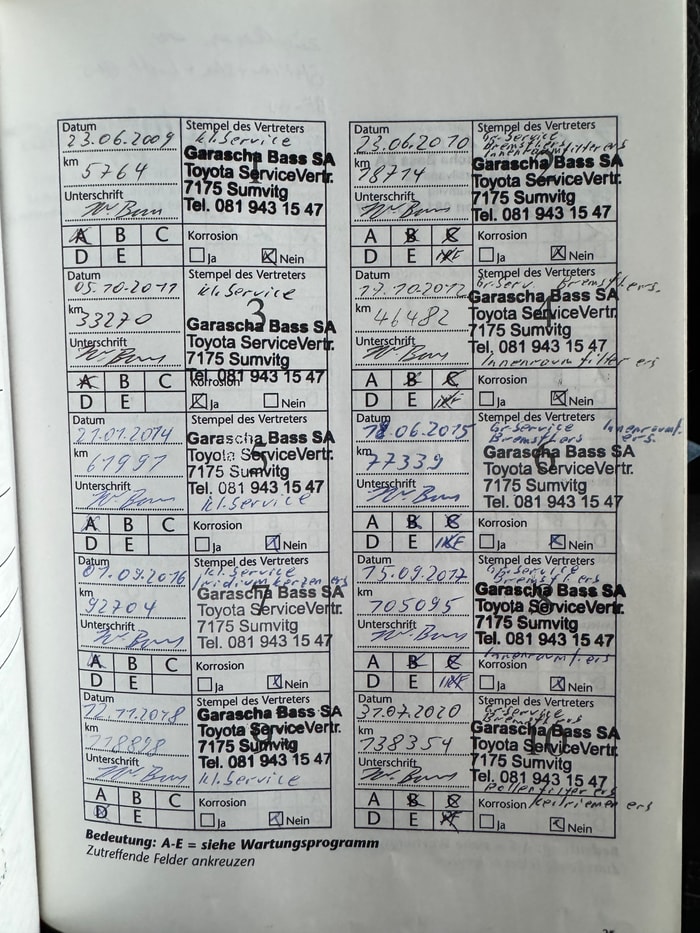 Datum
23.06.2009
km
5764
Unterschrift
Stempel des Vertreters
kl. Service
Garascha Bass SA
Toyota ServiceVertr.
7175 Sumvitg
Tel. 081 943 15 47
A B C
D E
Korrosion
Ja Nein
Datum
23.06.2010
km
18714
Unterschrift
Stempel des Vertreters
Gr. Service
Bremsfl ers
Innenraumfilter ers
Garascha Bass SA
Toyota ServiceVertr.
7175 Sumvitg
Tel. 081 943 15 47
A B C
D E
Korrosion
Ja Nein
Datum
05.10.2011
km
33270
Unterschrift
Stempel des Vertreters
kl. Service
3
Garascha Bass SA
Toyota ServiceVertr.
7175 Sumvitg
Tel. 081 943 15 47
A B C
D E
Korrosion
Ja Nein
Datum
17.10.2012
km
46482
Unterschrift
Stempel des Vertreters
Gr. Serv. Bremsfl ers.
4
Garascha Bass SA
Toyota ServiceVertr.
7175 Sumvitg
Tel. 081 943 15 47
Innenraumfilter ers
A B C
D E
Korrosion
Ja Nein
Datum
21.01.2014
km
61991
Unterschrift
Stempel des Vertreters
Garascha Bass SA
Toyota ServiceVertr.
7175 Sumvitg
Tel. 081 943 15 47
kl. Service
A B C
D E
Korrosion
Ja Nein
Datum
18.06.2015
km
77339
Unterschrift
Stempel des Vertreters
Gr. Service Innenraumf.
Bremsfl ers ers.
Garascha Bass SA
Toyota ServiceVertr.
7175 Sumvitg
Tel. 081 943 15 47
A B C
D E
Korrosion
Ja Nein
Datum
01.09.2016
km
92704
Unterschrift
Stempel des Vertreters
kl. Service
Iridiumkerzen ers
Garascha Bass SA
Toyota ServiceVertr.
7175 Sumvitg
Tel. 081 943 15 47
A B C
D E
Korrosion
Ja Nein
Datum
15.09.2017
km
105095
Unterschrift
Stempel des Vertreters
Gr. Service
Bremsfl ers
Garascha Bass SA
Toyota ServiceVertr.
7175 Sumvitg
Tel. 081 943 15 47
Innenraumf ers
A B C
D E
Korrosion
Ja Nein
Datum
12.11.2018
km
118898
Unterschrift
Stempel des Vertreters
Garascha Bass SA
Toyota ServiceVertr.
7175 Sumvitg
Tel. 081 943 15 47
kl. Service
A B C
D E
Korrosion
Ja Nein
Datum
31.07.2020
km
138354
Unterschrift
Stempel des Vertreters
Gr. Service
Bremsfl ers
Garascha Bass SA
Toyota ServiceVertr.
7175 Sumvitg
Tel. 081 943 15 47
Pollenfilter ers
Keilriemen ers
A B C
D E
Korrosion
Ja Nein
Bedeutung: A-E = siehe Wartungsprogramm
Zutreffende Felder ankreuzen